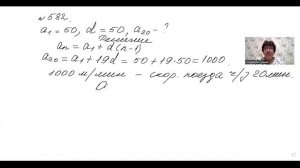 № 582.
a₁ = 50, d = 50, a₂₀ - ?
Решение
aₙ = a₁ + d(n-1)
a₂₀ = a₁ + 19d = 50 + 19·50 = 1000.
1000 м/мин - скор. поезда ч/з 20 мин.
О